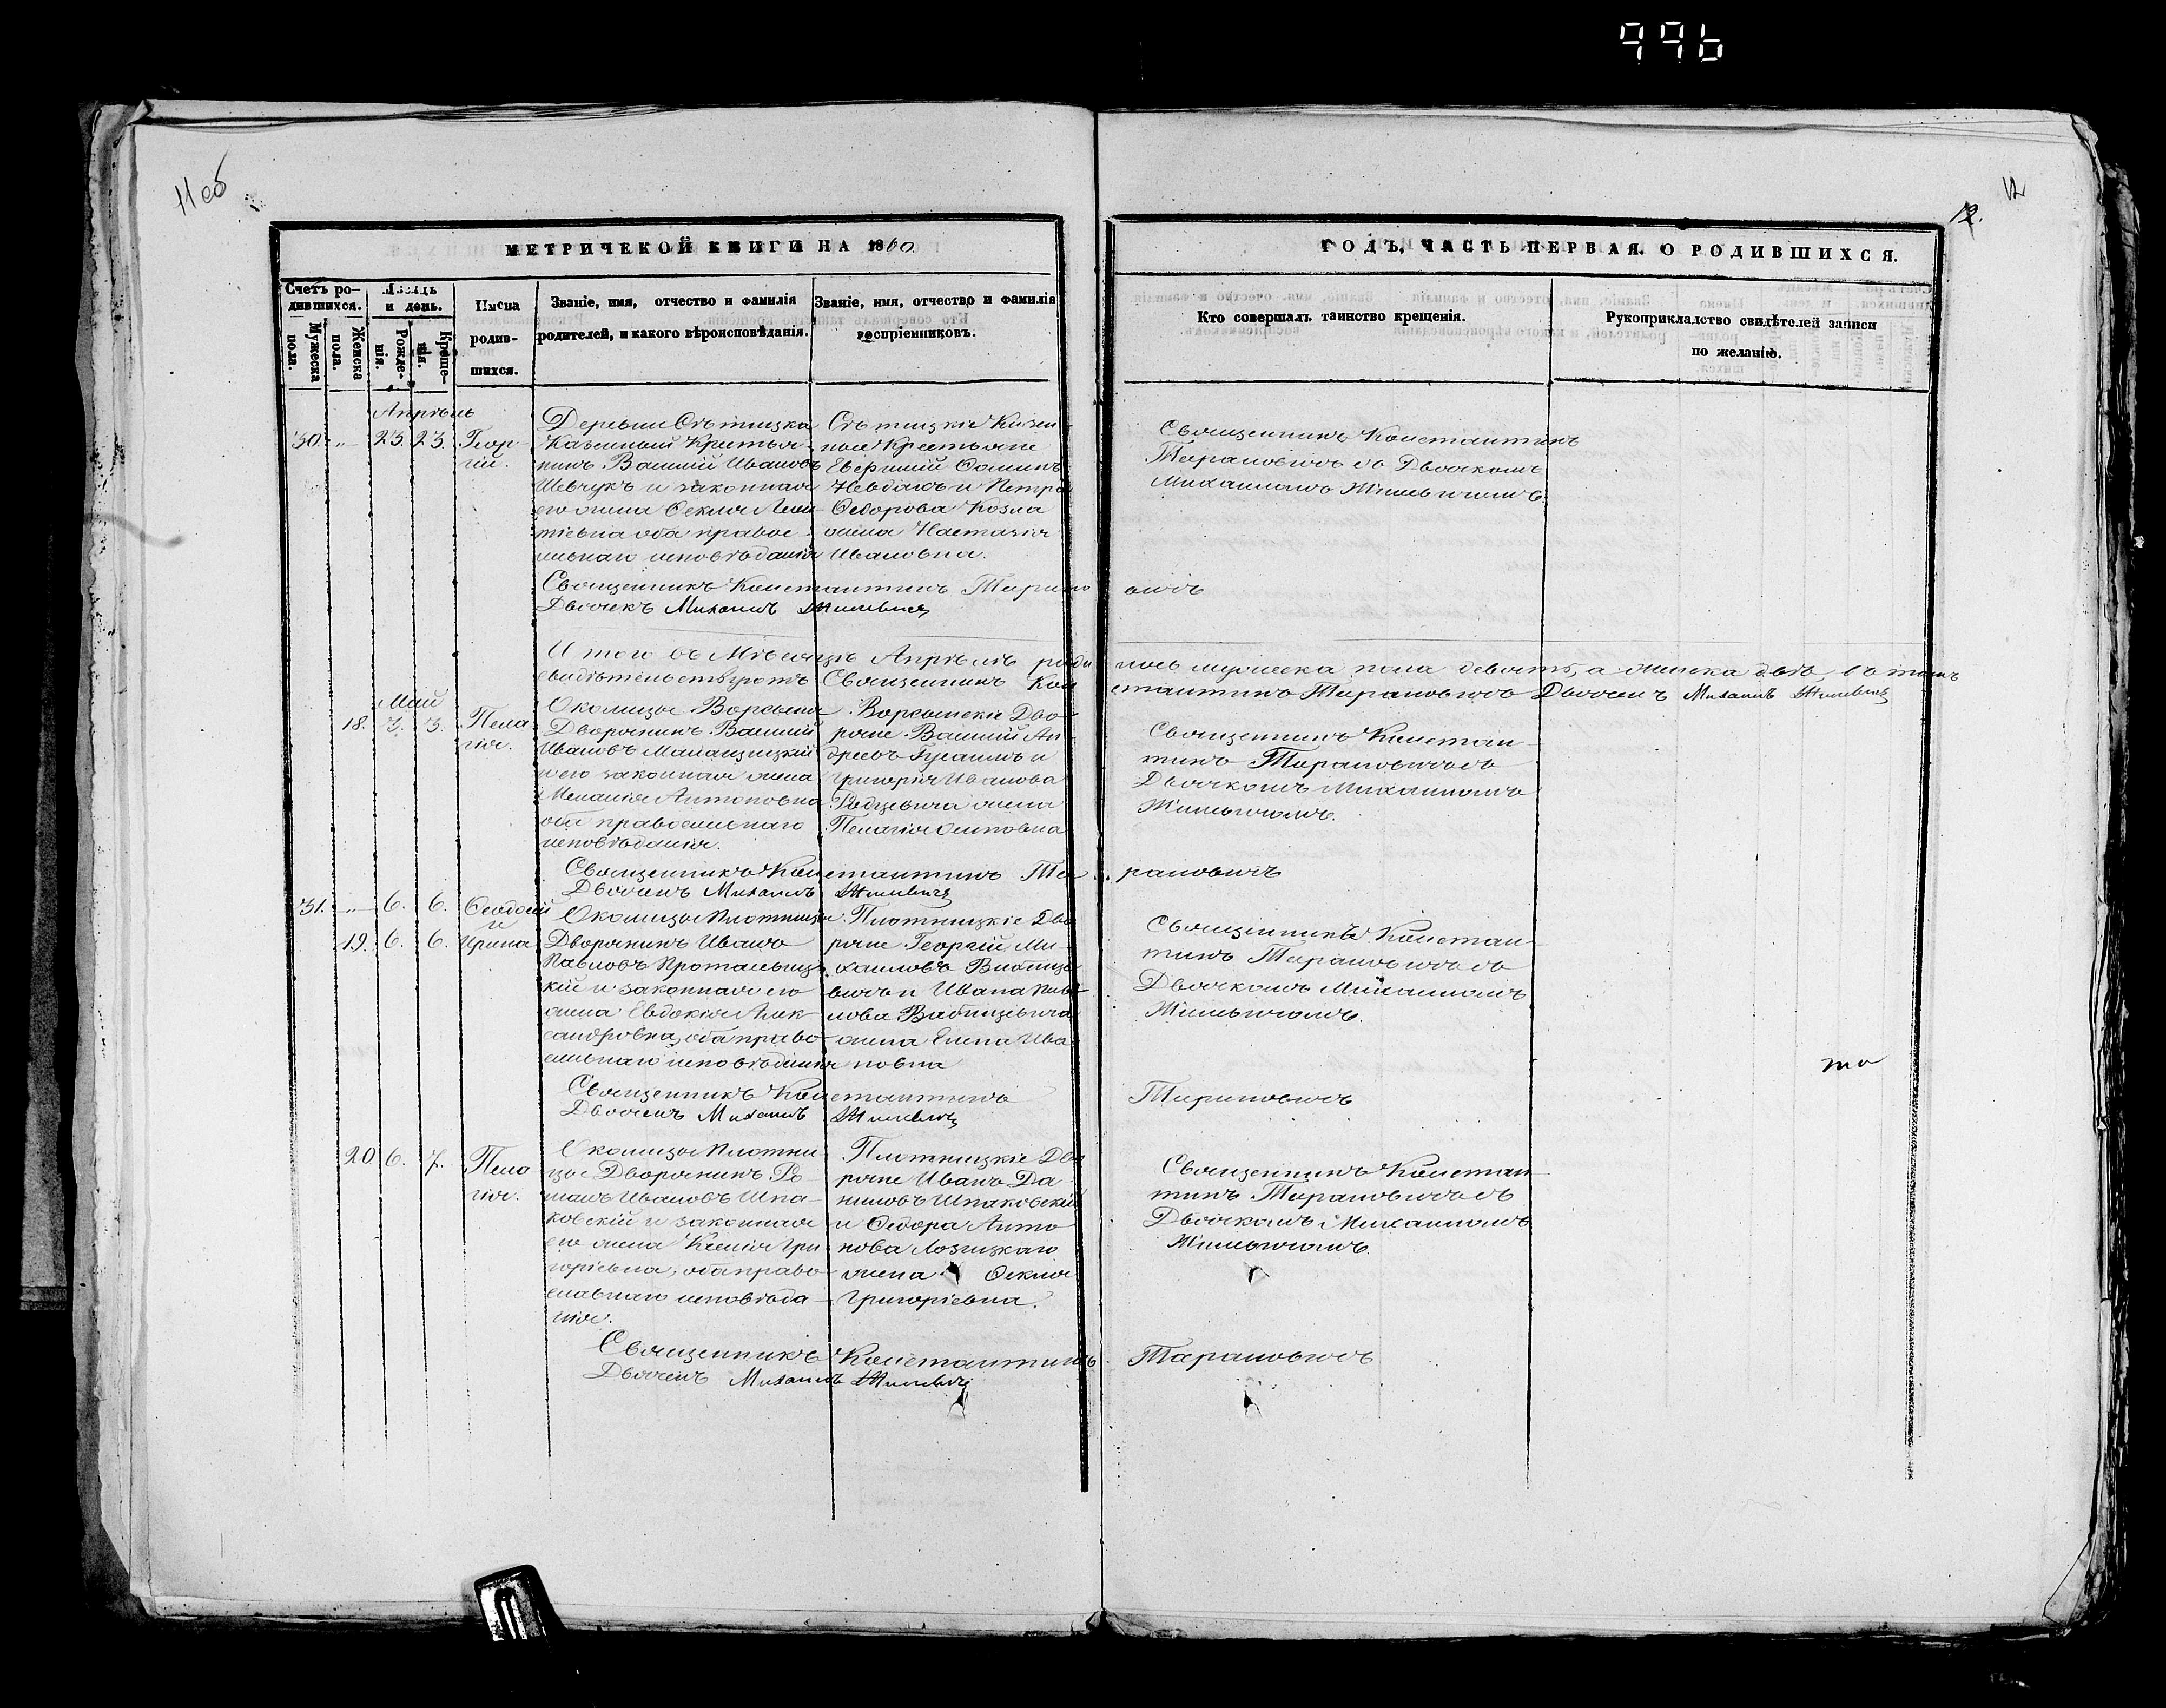 996
11 об
12
12.
МЕТРИЧЕКОЙ КНИГИ НА 1860.
ГОДЪ, ЧАСТЬ ПЕРВАЯ. О РОДИВШИХСЯ.
Счетъ ро-
дившихся.
Мужеска пола.
Женска пола.
Мѣсяць
и день.
Рожде-
нія.
Креще-
нія.
Имена
родив-
шихся.
Званіе, имя, отчество и фамилія
родителей, и какого вѣроисповѣданія.
Званіе, имя, отчество и фамилія
воспріемниковъ.
Кто совершалъ таинство крещенія.
Рукоприкладство свидѣтелей записи
по желанію.
Апрѣль
30. „ 23. 23. Геор-
гій.
Деревни
Казенный Крестья-
нинъ Василій Ивановъ
Шевчукъ и законная
его жена Ѳекла Леон-
тіевна оба право-
славнаго исповѣданія
Казен-
ные Крестьяне
Ѳоминъ
и Петра
Ѳедорова Козла
жена Настасія
Ивановна.
Священникъ Константинъ
Тарановичъ съ Дьячкомъ
Михаиломъ Жилевичомъ.
Священникъ Константинъ Тарано вичъ
Дьячекъ Михаилъ Жилевичъ
Итого въ Мѣсяцѣ Апрѣлѣ роди лось мужеска пола девять, а женска двѣ, въ томъ
свидѣтельствуютъ Священникъ Кон стантинъ Тарановичъ Дьячекъ Михаилъ Жилевичъ
Май
18. 3. 3. Пела
гія.
Околицы
Дворянинъ Василій
Ивановъ
и его законная жена
Меланія Антоновна
оба православнаго
исповѣданія.
Дво-
ряне Василій Ан-
дреевъ и
Григорія Иванова
Родцевича жена
Пелагія Осиповна
Священникъ Констан-
тинъ Тарановичъ съ
Дьячкомъ Михаиломъ
Жилевичомъ.
Священникъ Константинъ Та рановичъ
Дьячекъ Михаилъ Жилевичъ
31. „ 6. 6. Ѳеодосій
и
19. 6. 6. Ирина
Околицы Плотницы
Дворянинъ Иванъ
Павловъ Протасевиц-
кій и законная его
жена Евдокія Алек-
сандровна, оба право-
славнаго исповѣданія
Плотницкіе Дво
ряне Георгій Ми-
хаиловъ
вичъ и Ивана Пав-
лова
жена Елена Ива-
новна
Священникъ Констан-
тинъ Тарановичъ съ
Дьячкомъ Михаиломъ
Жилевичомъ.
Священникъ Константинъ Тарановичъ
Дьячекъ Михаилъ Жилевичъ
20. 6. 7. Пела
гія.
Околицы Плотни-
цы Дворянинъ Ро-
манъ Ивановъ Шпа-
ковскій и законная
его жена Ксенія Гри
горіевна, оба право-
славнаго исповѣда-
нія.
Плотницкіе Дво
ряне Иванъ Да-
ниловъ Шпаковскій
и Ѳедора Анто-
нова Лозицкаго
жена Ѳекла
Григоріевна.
Священникъ Констан-
тинъ Тарановичъ съ
Дьячкомъ Михаиломъ
Жилевичомъ.
Священникъ Константинъ Тарановичъ
Дьячекъ Михаилъ Жилевичъ